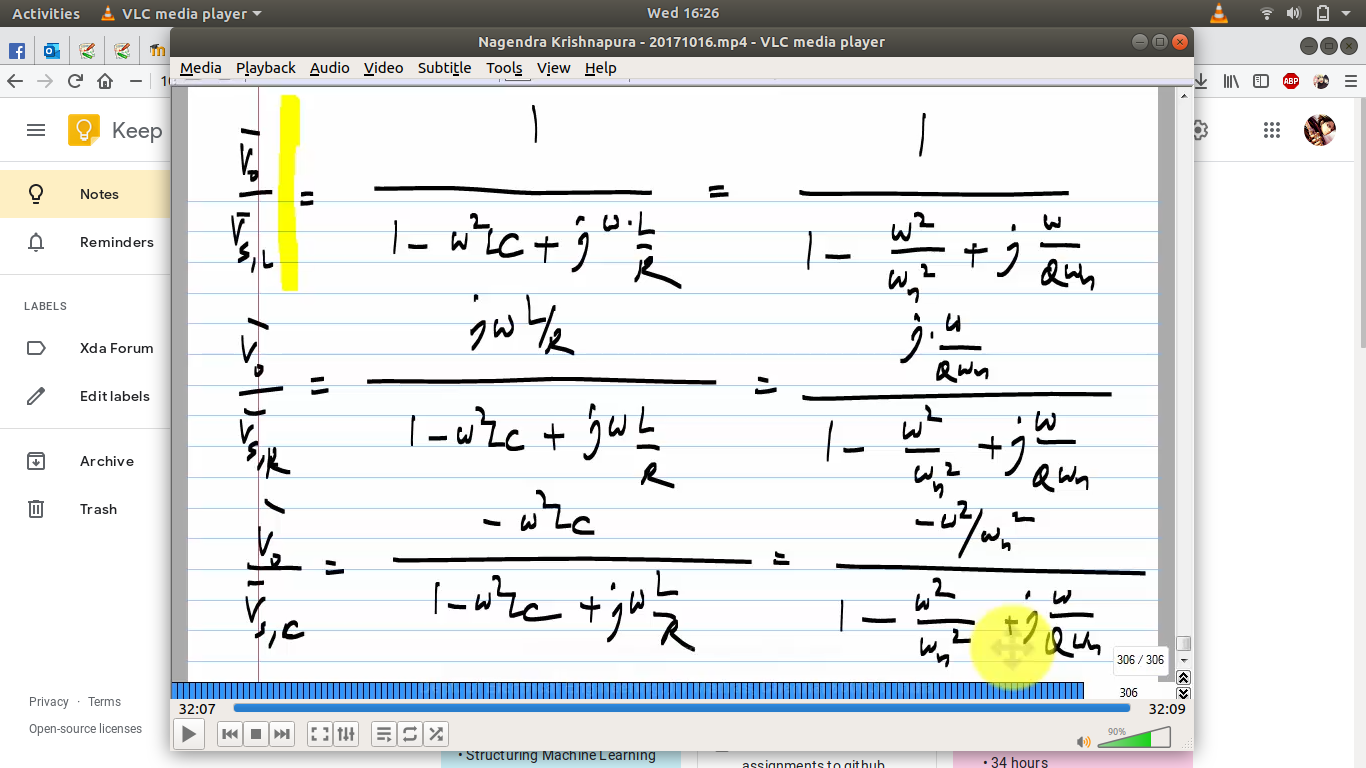 Activities VLC media player Wed 16:26
Nagendra Krishnapura - 20171016.mp4 - VLC media player
Media Playback Audio Video Subtitle Tools View Help
Keep
Notes
Reminders
LABELS
Xda Forum
Edit labels
Archive
Trash
Privacy · Terms
Open-source licenses
V̄o / V̄s,L = 1 / (1 - ω²LC + jω·L/R) = 1 / (1 - ω²/ωn² + j ω/Qωn)
V̄o / V̄s,R = jωL/R / (1 - ω²LC + jω L/R) = j·ω/Qωn / (1 - ω²/ωn² + j ω/Qωn)
V̄o / V̄s,C = -ω²LC / (1 - ω²LC + jω L/R) = -ω²/ωn² / (1 - ω²/ωn² + j ω/Qωn)
306 / 306
306
32:07 32:09
90%
• Structuring Machine Learning
assignments to github
• 34 hours
ABP